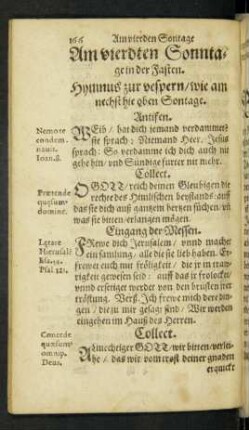 166 Am vierden Sontage
Am vierdten Sonnta-
ge in der Fasten.
Hymnus zur vespern / wie am
nechst hie oben Sontage.
Antifen.
Nemo te
condem-
nauit.
Ioan. 8.
WEib / hat dich jemand verdammet?
sie sprach: Niemand Herr. Jesus
sprach: So verdamme ich dich auch nit
gehe hin / und Sündige furter nit mehr.
Collect.
Prætende
quæsum-
domine.
O GOTT / reich deinen Gleubigen die
rechte des Himlischen beystands: auff
das sie dich auß gantzem hertzen süchen / vñ
was sie bitten erlangen mögen.
Eingang der Messen.
Lætare
Hierusalē
Psal. 121.
FRewe dich Jerusalem / vnnd mache
ein samlung / alle die sie lieb haben. Er-
frewet euch mit frölichkeit / die jr in traw-
rigkeit gewesen seid: auff das jr frolockt /
vnnd ersettiget werdet von den brüsten jrer
tröstung. Verß. Ich frewe mich der e din-
gen / die zu mir gesagt sind / Wir werden
eingehen im Hauß des Herren.
Collect.
Concede
quæsumus
omnip.
Deus.
ALmechtiger GOTT wir bitten / verlei-
he / das wir vom trost deiner gnaden
erquickt